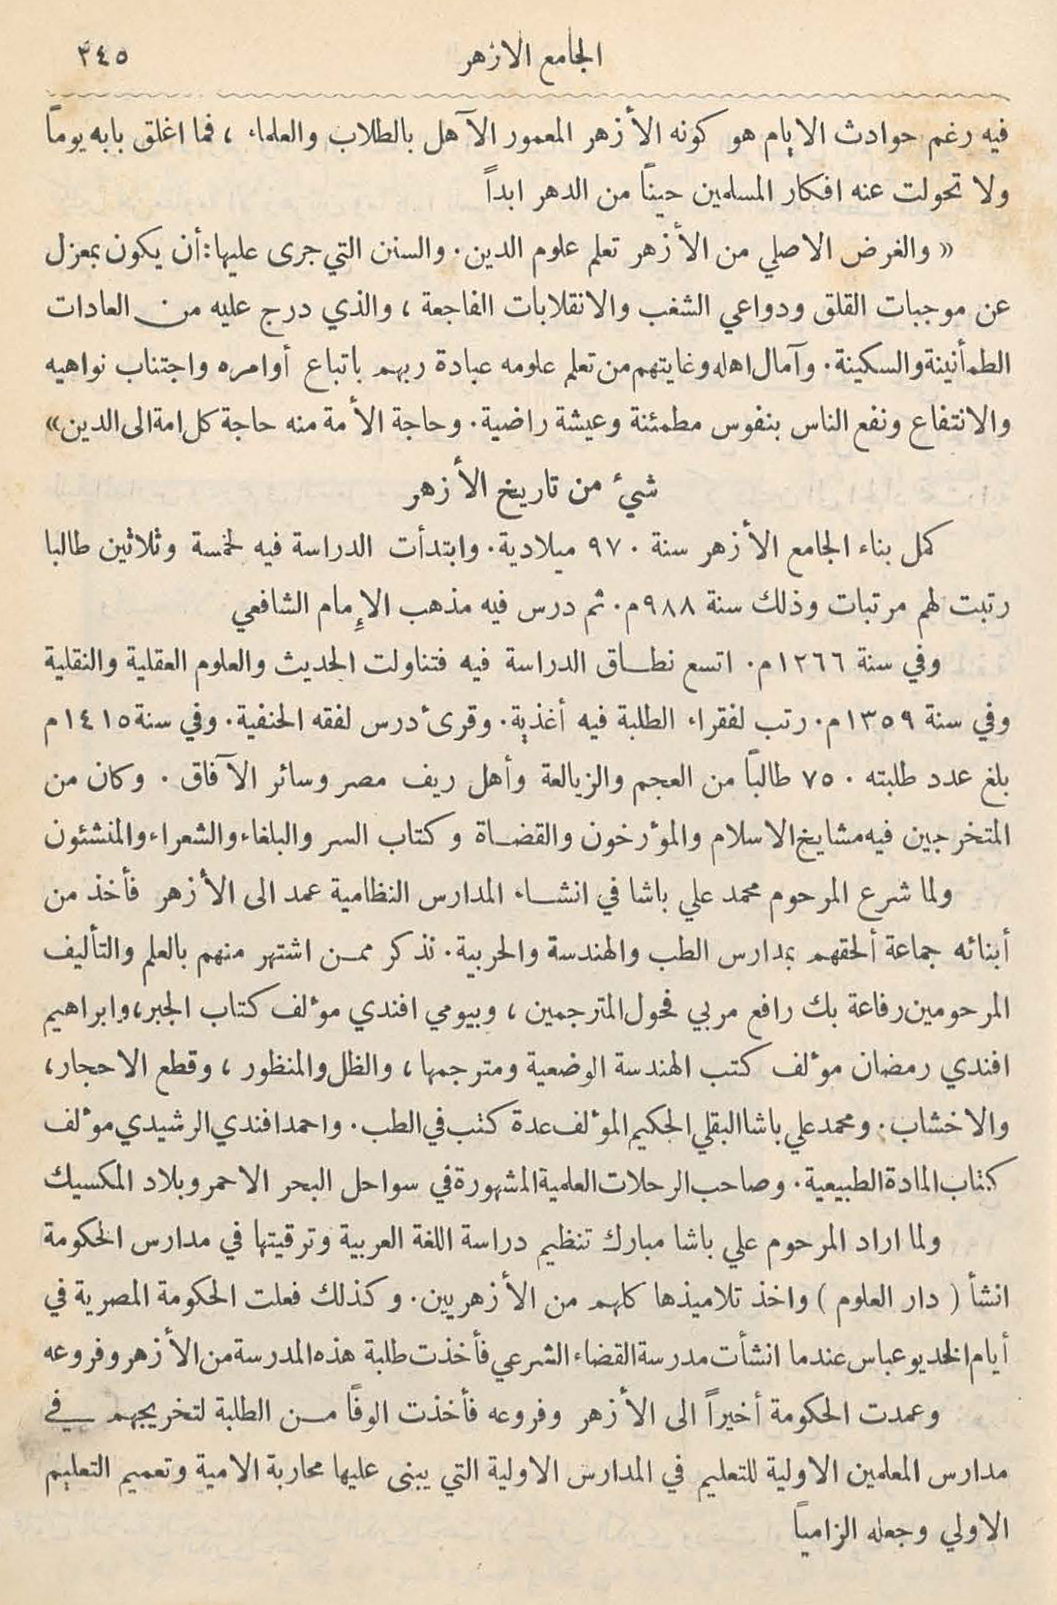 الجامع الازهر ٣٤٥
فيه رغم حوادث الايام هو كونه الأزهر المعمور الآهل بالطلاب والعلماء ، فما اغلق بابه يوماً
ولا تحولت عنه افكار المسلمين حيناً من الدهر ابداً
« والغرض الاصلي من الأزهر تعلم علوم الدين. والسنن التي جرى عليها: أن يكون بمعزل
عن موجبات القلق ودواعي الشغب والانقلابات الفاجعة ، والذي درج عليه من العادات
الطمأنينة والسكينة. وآمال اهله وغايتهم من تعلم علومه عبادة ربهم باتباع أوامره واجتناب نواهيه
والانتفاع ونفع الناس بنفوس مطمئنة وعيشة راضية. وحاجة الأمة منه حاجة كل امة الى الدين »
شيء من تاريخ الأزهر
كمل بناء الجامع الأزهر سنة ٩٧٠ ميلادية. وابتدأت الدراسة فيه لخمسة وثلاثين طالبا
رتبت لهم مرتبات وذلك سنة ٩٨٨م. ثم درس فيه مذهب الإمام الشافعي
وفي سنة ١٢٦٦م. اتسع نطاق الدراسة فيه فتناولت الحديث والعلوم العقلية والنقلية
وفي سنة ١٣٥٩م. رتب لفقراء الطلبة فيه أغذية. وقرىء درس لفقه الحنفية. وفي سنة ١٤١٥م
بلغ عدد طلبته ٧٥٠ طالباً من العجم والزيالعة وأهل ريف مصر وسائر الآفاق . وكان من
المتخرجين فيه مشايخ الاسلام والمؤرخون والقضاة وكتاب السر والبلغاء والشعراء والمنشئون
ولما شرع المرحوم محمد علي باشا في انشاء المدارس النظامية عمد الى الأزهر فأخذ من
أبنائه جماعة ألحقهم بمدارس الطب والهندسة والحربية. نذكر ممن اشتهر منهم بالعلم والتأليف
المرحومين رفاعة بك رافع مربي فحول المترجمين ، وبيومي افندي مؤلف كتاب الجبر، وابراهيم
افندي رمضان مؤلف كتب الهندسة الوضعية ومترجمها ، والظل والمنظور ، وقطع الاحجار،
والاخشاب. ومحمد علي باشا البقلي الحكيم المؤلف عدة كتب في الطب. واحمد افندي الرشيدي مؤلف
كتاب المادة الطبيعية. وصاحب الرحلات العلمية المشهورة في سواحل البحر الاحمر وبلاد المكسيك
ولما اراد المرحوم علي باشا مبارك تنظيم دراسة اللغة العربية وترقيتها في مدارس الحكومة
انشأ ( دار العلوم ) واخذ تلاميذها كلهم من الأزهريين. وكذلك فعلت الحكومة المصرية في
أيام الخديو عباس عندما انشأت مدرسة القضاء الشرعي فأخذت طلبة هذه المدرسة من الأزهر وفروعه
وعمدت الحكومة أخيراً الى الأزهر وفروعه فأخذت الوفًا من الطلبة لتخريجهم في
مدارس المعلمين الاولية للتعليم في المدارس الاولية التي يبنى عليها محاربة الامية وتعميم التعليم
الاولي وجعله الزامياً